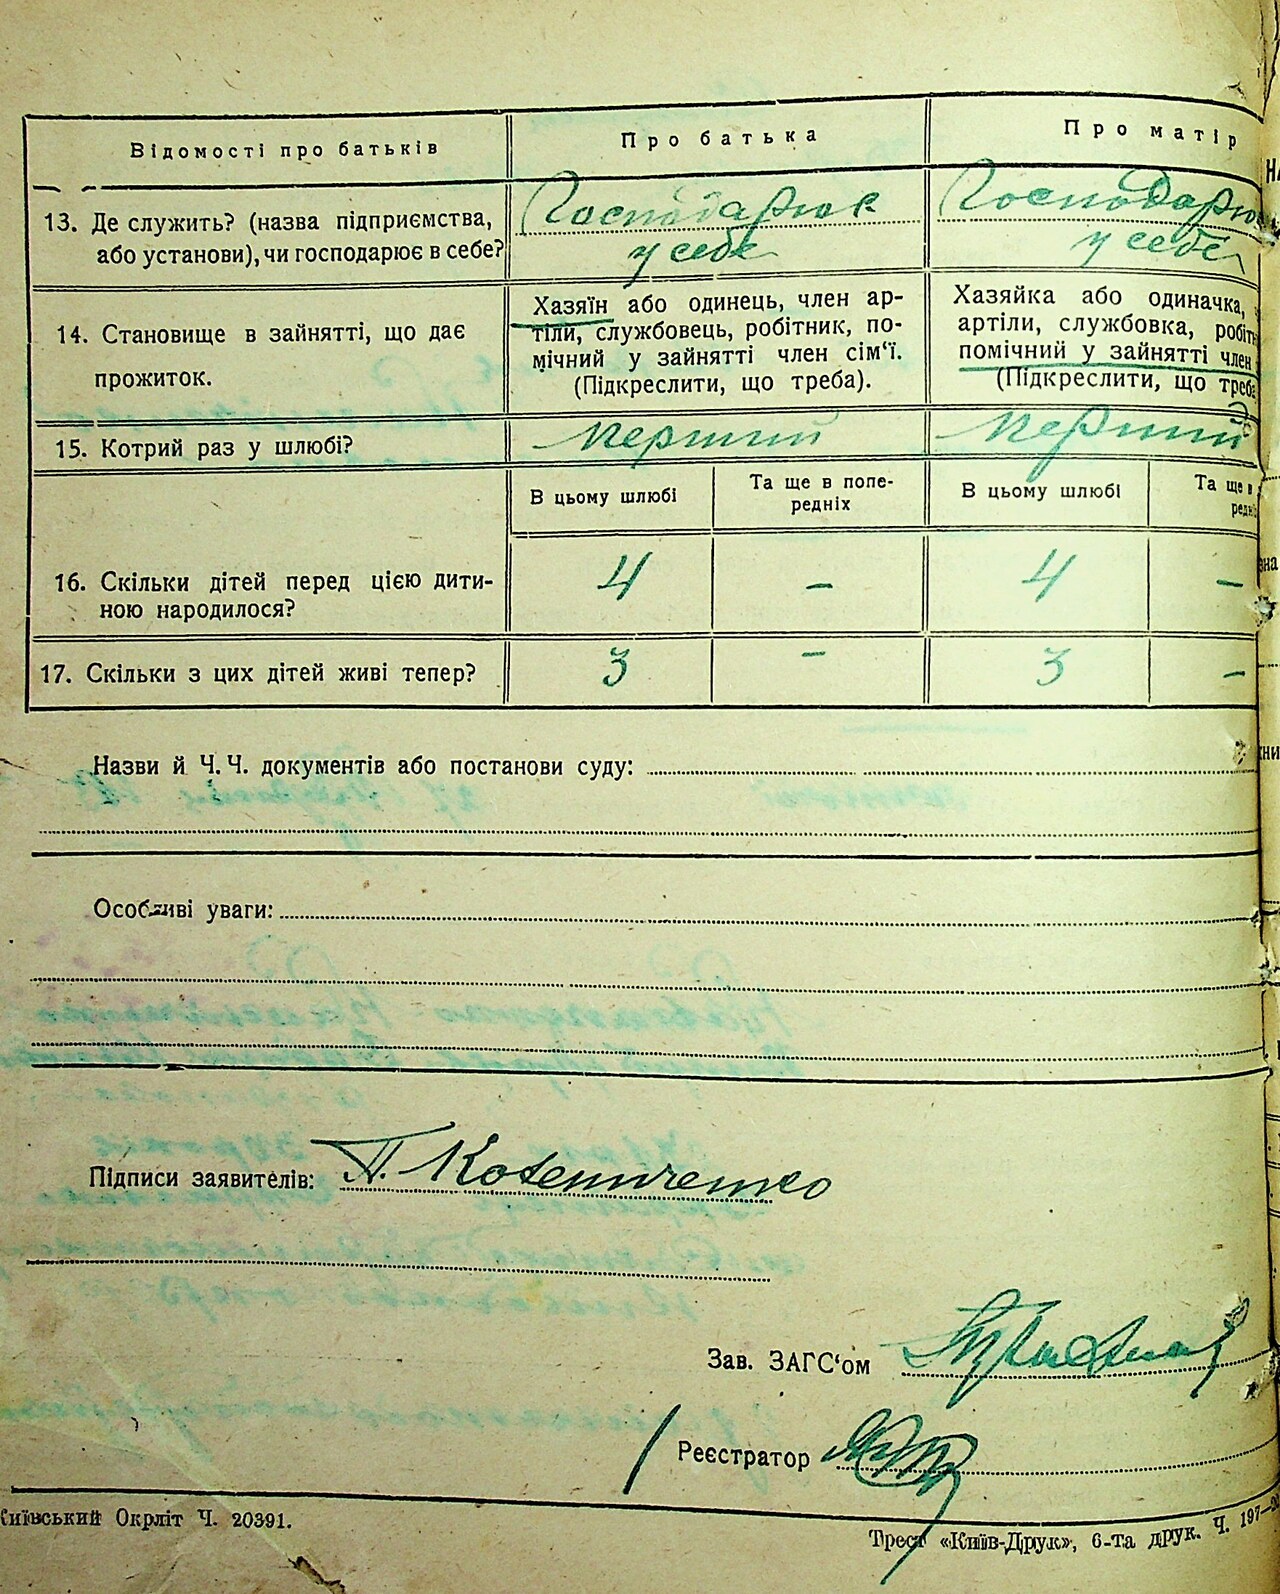 Відомості про батьків
Про батька
Про матір
13. Де служить? (назва підприємства,
або установи), чи господарює в себе?
Господарює
у себе
Господарює
у себе
14. Становище в зайнятті, що дає
прожиток.
Хазяїн або одинець, член ар-
тіли, службовець, робітник, по-
мічний у зайнятті член сім'ї.
(Підкреслити, що треба).
Хазяйка або одиначка,
артіли, службовка, робіт
помічний у зайнятті член
(Підкреслити, що треба
15. Котрий раз у шлюбі?
Перший
Перший
В цьому шлюбі
Та ще в попе-
редніх
В цьому шлюбі
Та ще в
редні
16. Скільки дітей перед цією дити-
ною народилося?
4
–
4
–
17. Скільки з цих дітей живі тепер?
3
–
3
–
Назви й Ч. Ч. документів або постанови суду:
Особливі уваги:
Підписи заявителів: П.
Зав. ЗАГС'ом
Реєстратор
Київський Окрліт Ч. 20391.
Трест «Київ-Друк», 6-та друк. Ч. 197—